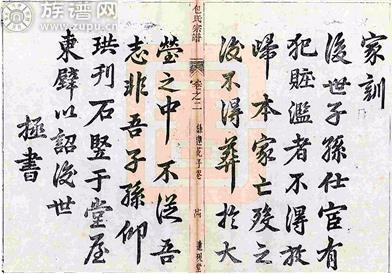 家訓
後世子孫仕宦有
犯贓濫者不得放
歸本家亡殁之
後不得葬於大
塋之中不從吾
志非吾子孫仰
珙刊石竪于堂屋
東壁以詔後世
拯書
包氏宗譜
卷之二
族谱网